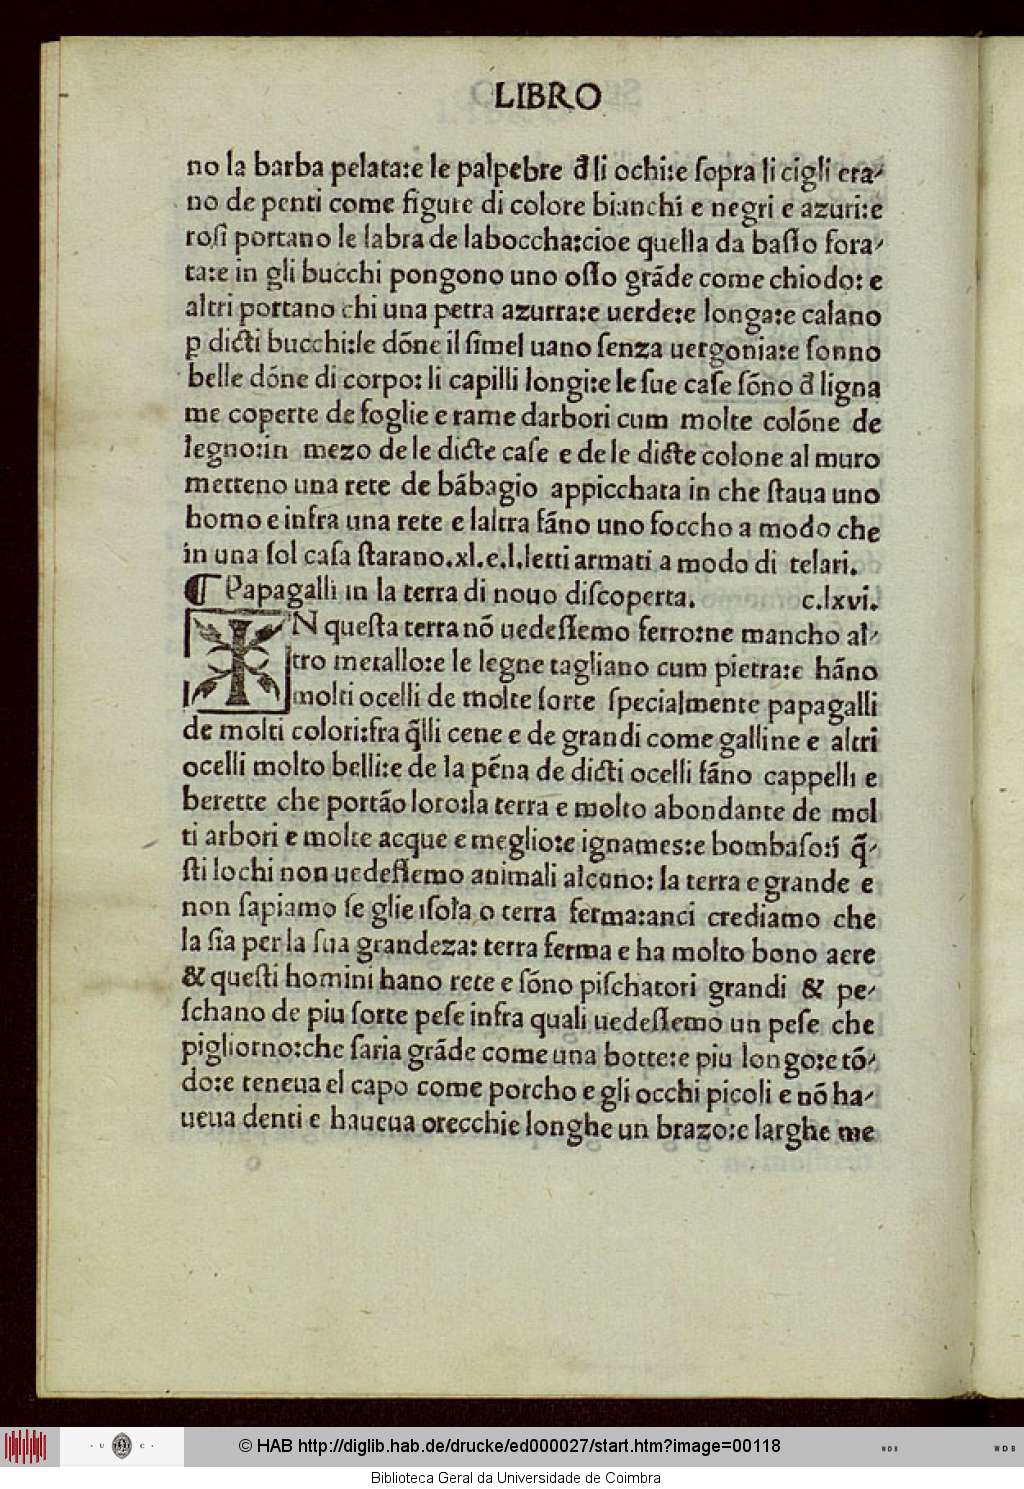 LIBRO
no la barba pelata:e le palpebre đli ochi:e ſopra li cigli era-
no de penti come figure di colore bianchi e negri e azuri:e
roſi portano le labra de laboccha:cioe quella da baſſo fora-
ta:e in gli bucchi pongono uno oſſo grãde come chiodo: e
altri portano chi una petra azurra:e uerde:e longa:e calano
ꝑ dicti bucchi:le dõne il ſimel uano ſenza uergonia:e ſonno
belle dõne di corpo: li capilli longi:e le ſue caſe ſõno đ ligna
me coperte de foglie e rame darbori cum molte colõne de
legno:in mezo de le dicte caſe e de le dicte colone al muro
metteno una rete de bãbagio appicchata in che ſtaua uno
homo e infra una rete e laltra fãno uno foccho a modo che
in una ſol caſa ſtarano.xl.e.l.letti armati a modo di telari.
¶ Papagalli in la terra di nouo diſcoperta. c.lxvi.
IN queſta terra nõ uedeſſemo ferro:ne mancho al-
tro metallo:e le legne tagliano cum pietra:e hãno
molti ocelli de molte ſorte ſpecialmente papagalli
de molti colori:fra q̃lli cene e de grandi come galline e altri
ocelli molto belli:e de la pẽna de dicti ocelli fãno cappelli e
berette che portão loro:la terra e molto abondante de mol
ti arbori e molte acque e meglio:e ignames:e bombaſo:i q̃-
ſti lochi non uedeſſemo animali alcuno: la terra e grande e
non ſapiamo ſe glie iſola o terra ferma:anci crediamo che
la ſia per la ſua grandeza: terra ferma e ha molto bono aere
& queſti homini hano rete e ſõno piſchatori grandi & pe-
ſchano de piu ſorte peſe infra quali uedeſſemo un peſe che
pigliorno:che ſaria grãde come una botte:e piu longo:e tõ-
do:e teneua el capo come porcho e gli occhi picoli e nõ ha-
ueua denti e haueua orecchie longhe un brazo:e larghe me
© HAB http://diglib.hab.de/drucke/ed000027/start.htm?image=00118
Biblioteca Geral da Universidade de Coimbra